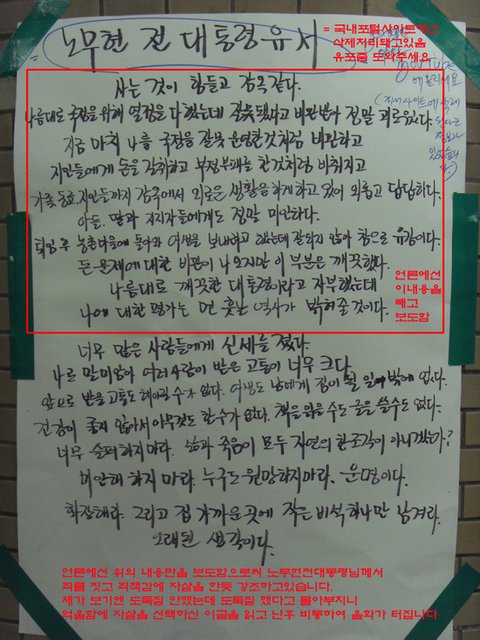 노무현 전 대통령 유서
= 국내포털사이트에선
삭제처리돼고있음
유포를 도와주세요
사는 것이 힘들고 감옥같다.
나름대로 국정을 위해 열정을 다했는데 잘못됐다고 비판받아 정말 괴로웠다.
지금 마치 나를 국정을 잘못 운영한것처럼 비판하고
지인들에게 돈을 갈취하고 부정부패를 한것처럼 비춰지고
가족 동료, 지인들까지 감옥에서 외로운 생활을 하게 하고 있어 외롭고 답답하다.
아들, 딸과 지지자들에게도 정말 미안하다.
퇴임후 농촌마을에 돌아와 여생을 보내려고 했는데 잘 되지 않아 참으로 유감이다.
돈 문제에 대한 비판이 나오지만 이 부분은 깨끗했다.
나름대로 깨끗한 대통령이라고 자부했는데
나에 대한 평가는 먼 훗날 역사가 밝혀줄 것이다.
언론에선
이내용을
빼고
보도함
너무 많은 사람들에게 신세를 졌다.
나로 말미암아 여러사람이 받은 고통이 너무 크다.
앞으로 받을 고통도 헤아릴 수가 없다. 여생도 남에게 짐이 될 일 밖에 없다.
건강이 좋지 않아서 아무것도 할 수가 없다. 책을 읽을 수도 글을 쓸 수도 없다.
너무 슬퍼하지 마라. 삶과 죽음이 모두 자연의 한 조각이 아니겠는가?
미안해 하지 마라. 누구도 원망하지 마라. 운명이다.
화장해라. 그리고 집 가까운 곳에 작은 비석 하나만 남겨라.
오래된 생각이다.
언론에선 위의 내용만을 보도함으로써 노무현전대통령님께서
죄를 짓고 죄책감에 자살을 한듯 강조하고있습니다.
제가 보기엔 도둑질 안했는데 도둑질 했다고 몰아부치니
억울함에 자살을 선택하신 이글을 읽고 난후 비통하여 울화가 터집니다